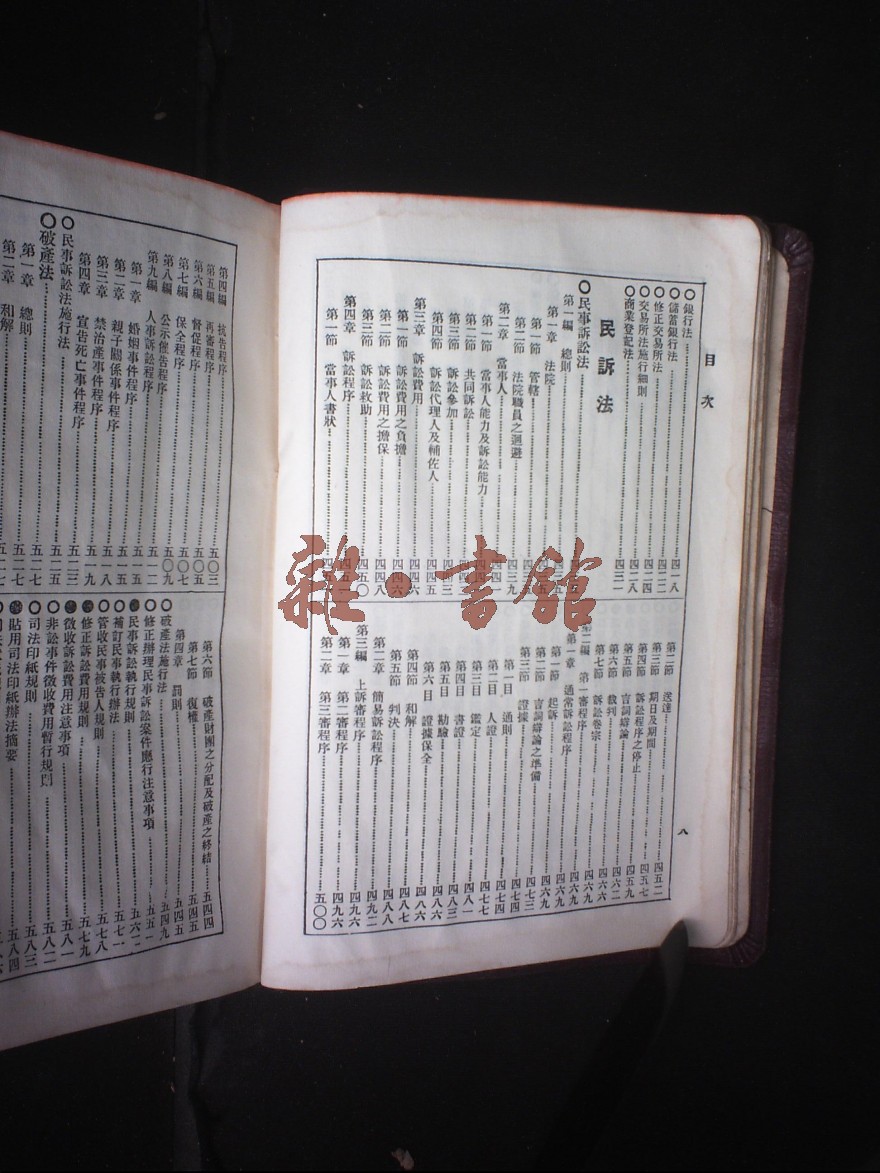 目次
○銀行法……四一八
○儲蓄銀行法……四二二
○修正交易所法……四二四
○交易所法施行細則……四二八
○商業登記法……四三一
民訴法
○民事訴訟法
第一編 總則
第一章 法院
第一節 管轄
第二節 法院職員之迴避……四三九
第二章 當事人……四四一
第一節 當事人能力及訴訟能力
第二節 共同訴訟
第三節 訴訟參加……四四三
第四節 訴訟代理人及輔佐人……四四五
第三章 訴訟費用……四四六
第一節 訴訟費用之負擔……四四六
第二節 訴訟費用之擔保……四四八
第三節 訴訟救助……四五〇
第四章 訴訟程序……四五一
第一節 當事人書狀
第二節 送達……四五二
第三節 期日及期間……四五七
第四節 訴訟程序之停止
第五節 言詞辯論……四五九
第六節 裁判……四六二
第七節 訴訟卷宗……四六六
第二編 第一審程序……四六九
第一章 通常訴訟程序……四六九
第一節 起訴……四六九
第二節 言詞辯論之準備……四六九
第三節 證據……四七三
第一目 通則……四七四
第二目 人證……四七七
第三目 鑑定……四八一
第四目 書證……四八三
第五目 勘驗……四八六
第六目 證據保全……四八六
第四節 和解……四八七
第五節 判決……四八八
第二章 簡易訴訟程序……四九二
第三編 上訴審程序……四九六
第一章 第二審程序……四九六
第二章 第三審程序……五〇〇
八
第四編 抗告程序……五〇三
第五編 再審程序……五〇五
第六編 督促程序……五〇七
第七編 保全程序……五〇九
第八編 公示催告程序……五一二
第九編 人事訴訟程序……五一五
第一章 婚姻事件程序……五一五
第二章 親子關係事件程序……五一八
第三章 禁治產事件程序……五一九
第四章 宣告死亡事件程序……五二三
○民事訴訟法施行法……五二五
○破產法……五二七
第一章 總則……五二七
第二章 和解……五二七
第六節 破產財團之分配及破產之終結……五四四
第七節 復權……五四五
第四章 罰則……五四五
○破產法施行法……五四九
○修正辦理民事訴訟案件應行注意事項……五五一
民事訴訟執行規則……五六二
○補訂民事執行辦法……五七一
○管收民事被告人規則……五七八
修正訴訟費用規則……五七九
徵收訴訟費用注意事項……五八一
○非訟事件徵收費用暫行規則
○司法印紙規則……五八三
貼用司法印紙辦法摘要……五八四
雜·書館